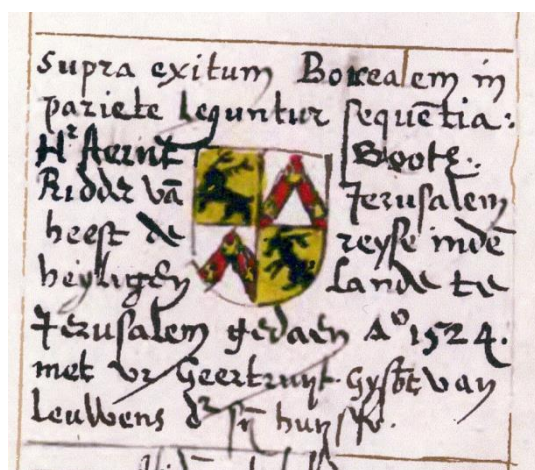 Supra exitum Borealem in
pariete leguntur sequētia:
Hr Aernt Boote..
Riddr vā Jerusalem
heeft de reyse indē
heyligen lande te
Jerusalem gedaen Ao 1524.
met vr Geertruyt Gysbt van
Leuwens dr sn huysfr.